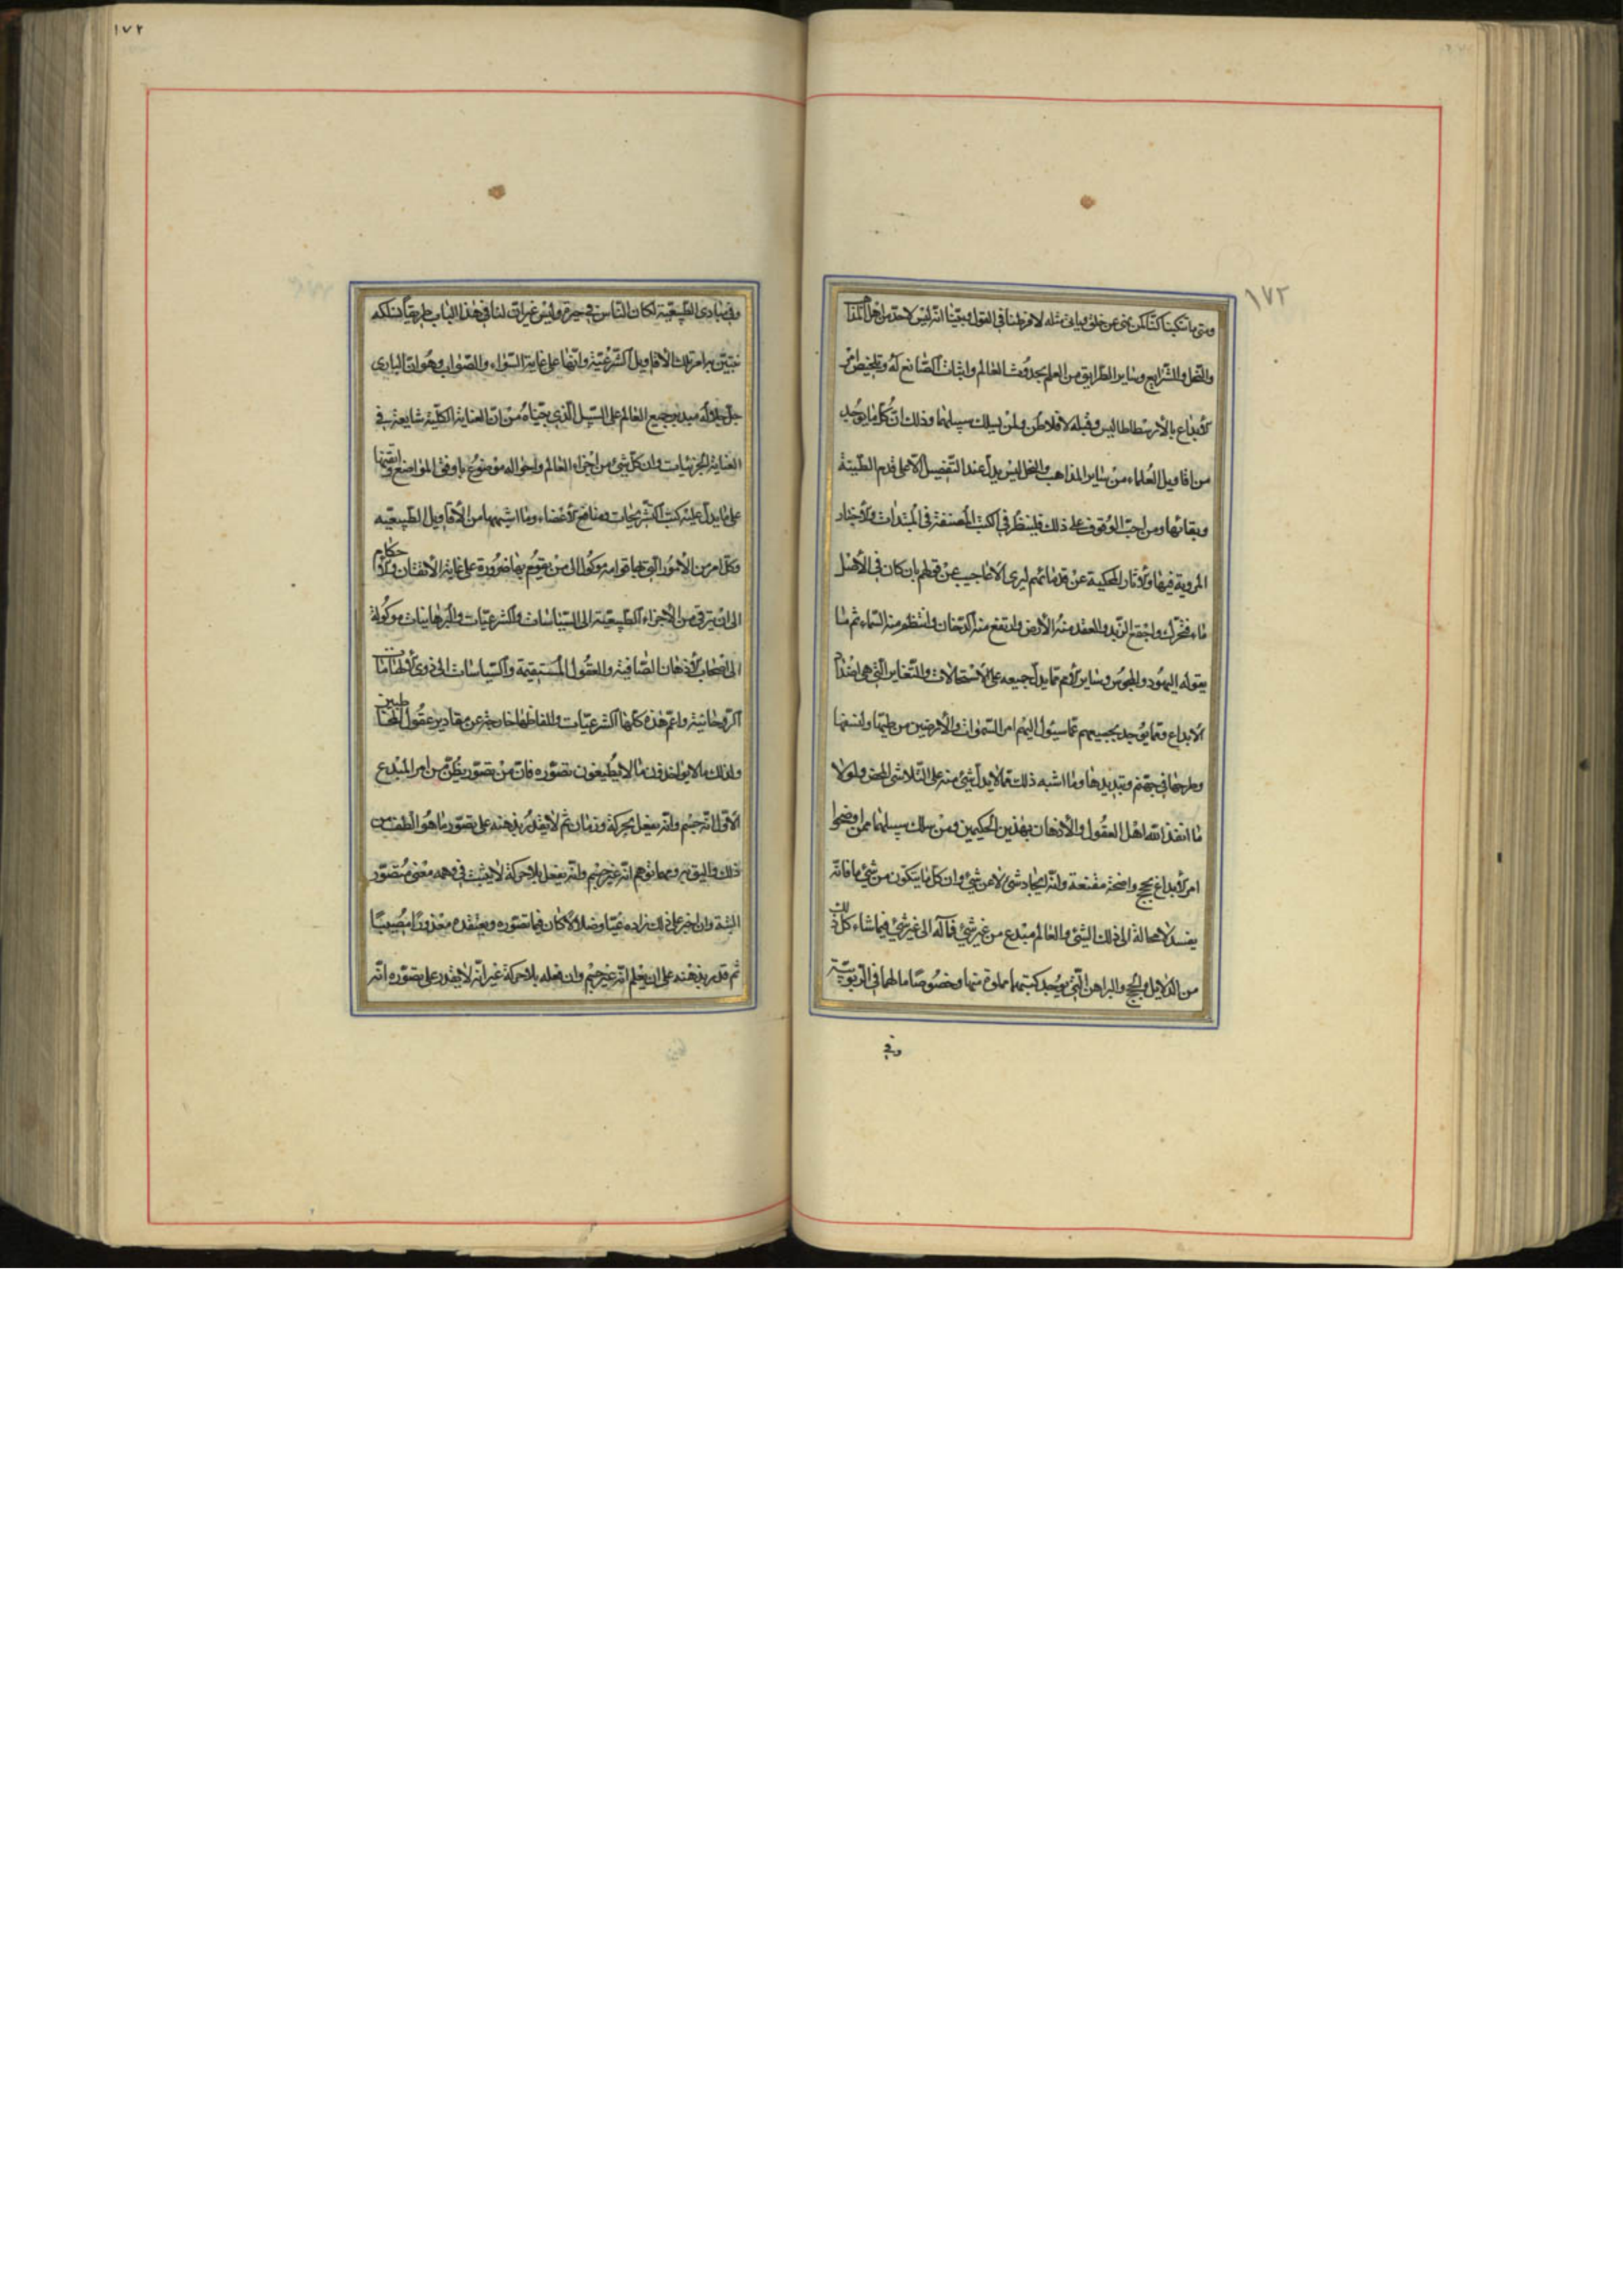 ١٧٢
ومتى ما نكبنا كنا كمن ينهى عن خلق ويأتى مثله لافرطنا فى القول وبينا انه ليس لاحد من اهل المذاهب
والنحل والشرايع وساير الطرايق من العلم بحدوث العالم واثبات الصانع له وتلخيص امر
الابداع ما لأرسطاطاليس وقبله لافلاطن ولمن يسلك سبيلهما وذلك ان كل ما يوجد
من اقاويل العلماء من ساير المذاهب والنحل ليس يدل عند التفصيل الا على قدم الطبيعة
وبقائها ومن احب الوقوف على ذلك فلينظر فى الكتب المصنفة فى المبتدات والاخبار
المروية فيها والآثار المحكية عن قدمائهم ليرى الاعاجيب عن قولهم بان كان فى الأصل
ماء فتحرك واجتمع الزبد وانعقد منه الأرض وارتفع منه الدخان وانتظم منه السماء ثم ما
يقوله اليهود والمجوس وساير الأمم مما يدل جميعه على الاستحالات والتغاير التى هى اضداد
الابداع وما يوجد بجميعهم مما سيئول اليهم امر السموات والأرضين من طيها ولفها
وطرحها فى جهنم وتبديدها وما اشبه ذلك مما لا يدل شئ منه على التلاشى المحض ولولا
ما انقذ الله اهل العقول والأذهان بهذين الحكيمين ومن سلك سبيلهما ممن اوضحوا
امر الابداع بحجج واضحة مقنعة وانه ايجاد شئ لا عن شئ وان كل ما يتكون من شئ ما فانه
يفسد لا محالة الى ذلك الشئ والعالم مبدع من غير شئ فمآله الى غير شئ فيما شاء كل ذلك
من الدلايل والحجج والبراهن التى يوجد كتبهما مملوة منها وخصوصا ما لهما فى الربوبية
وفى
١٧٢
وفى مبادى الطبيعية لكان الناس فى حيرة وليس غير ان لنا فى هذا الباب طريقا نسلكه
نتبين به امر تلك الأقاويل الشرعية وانها على غاية السواء والصواب وهو ان البارى
جل جلاله مدبر جميع العالم على السبيل الذى بيناه من ان العناية الكلية شايعة فى
العناية الجزئيات وان كل شئ من اجزاء العالم واحواله موضوع باوفق المواضع واتقنها
على ما يدل عليه كتب التشريحات ومنافع الأعضاء وما اشبهها من الأقاويل الطبيعية
وكل امر من الأمور التى بها قوامه موكول الى من يقوم بها ضرورة على غاية الأتقان والأحكام
الى ان يترقى من الأجزاء الطبيعية الى السياسات والشرعيات والبرهانيات موكولة
الى اصحاب الأذهان الصافية والعقول المستقيمة والسياسات الى ذوى الالهامات
الروحانية واعم هذه كلها الشرعيات والفاظها خارجة عن مقادير عقول المخاطبين
ولذلك ما لا يواخذون ما لا يطيقون تصوره فان من تصور يظن من امر المبدع
الأول انه جسم وانه يفعل بحركة وزمان ثم لا يقدر بذهنه على تصور ما هو الطف من
ذلك واليق به ومهما توهم انه غير جسم وانه يفعل بلا حركة لا يثبت فى وهمه معنى متصور
البتة وان اجبر على ذلك زاده غيا وضلالا كان فيما تصوره ويعتقده معذورا مصيبا
ثم قدر بذهنه على ان يعلم انه غير جسم وان فعله بلا حركة غير انه لا يقدر على تصوره انه